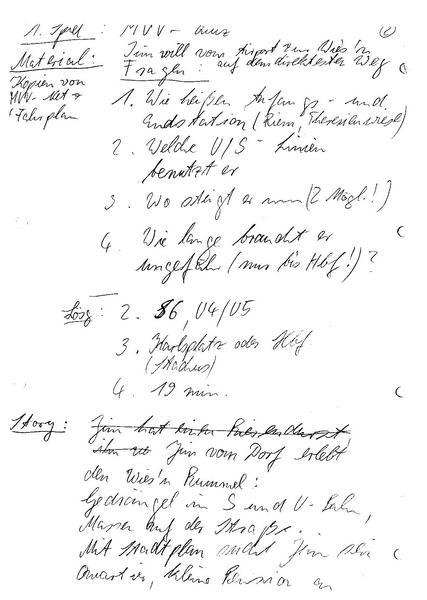 1. Spiel : MVV - Quiz
Material : Jim will vom Airport zur Wies'n
Fragen : auf dem direktesten Weg
Kopien von
MVV-Netz
Fahrplan
1. Wie heißen Anfangs- und
Endstation (Riem, Theresienwiese)
2. Welche U/S - Linien
benutzt er
3. Wo steigt er um (2 Mögl.!)
4. Wie lange braucht er
ungefähr (nur bis Hbf!)?
Lösg : 2. S6, U4/U5
3. Karlsplatz oder Hbf
(Stachus)
4. 19 min.
Story : Jim hat einen Riesendurst
ihm Jim vom Dorf erlebt
den Wies'n Rummel :
Gedrängel in S und U-Bahn,
Massen auf der Straße.
Mit Stadtplan sucht Jim sein
Quartier, kleine Pension am